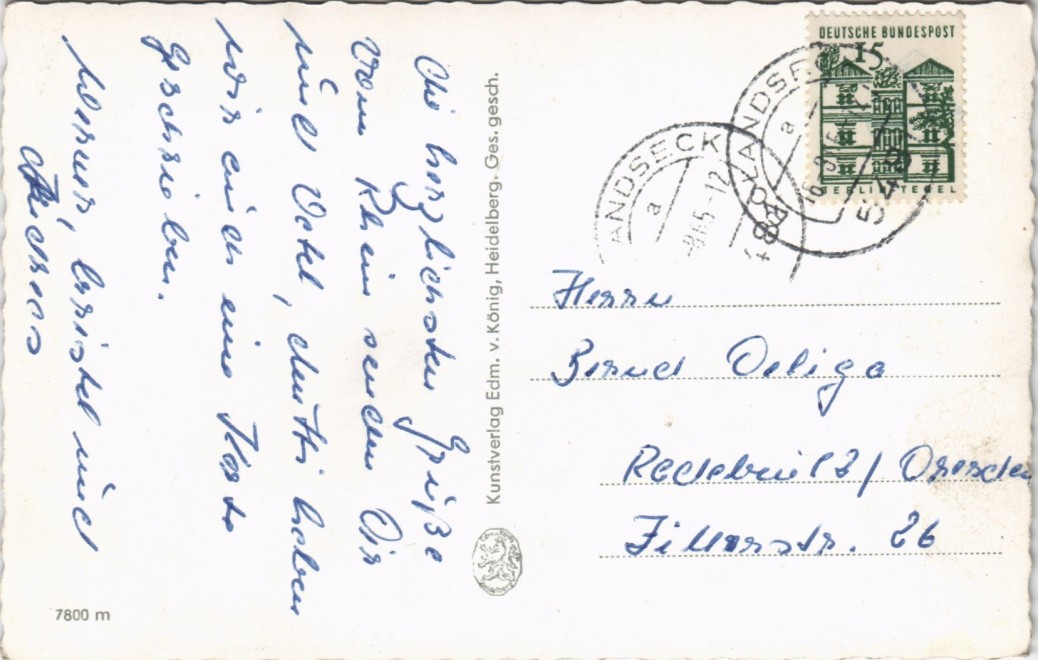 Die herzlichsten Grüße
vom Rhein senden Dir
und Vati, Mutti haben
wir auch eine Karte
geschrieben.
Werner, Christel und
Andreas
Kunstverlag Edm. v. König, Heidelberg. Ges. gesch.
7800 m
DEUTSCHE BUNDESPOST
15
BERLIN-TEGEL
ROLANDSECK
a
5486
ANDSECK
a
65-12
Herrn
Bernd Deliga
Radebeul 2/ Dresden
Zillerstr. 26